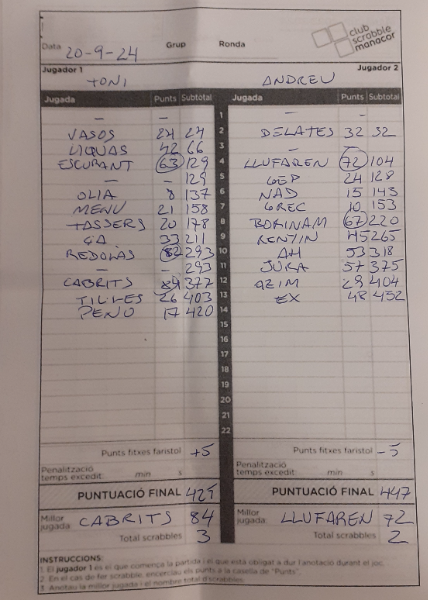 club
scrabble
manacor
Data 20-9-24 Grup Ronda
Jugador 1 Jugador 2
TONI ANDREU
Jugada Punts Subtotal Jugada Punts Subtotal
— — 1 — —
VASOS 24 24 2 DELATES 32 32
LIQUAS 42 66 3 —
ESCURANT 63 129 4 LLUFAREN 72 104
— 129 5 GEP 24 128
OLIA 8 137 6 NAD 15 143
MENU 21 158 7 GREC 10 153
TASSERS 20 178 8 BORINAM 67 220
GA 33 211 9 RENYIN 45 265
REDOLAS 82 293 10 AH 53 318
— — 293 11 JUKA 57 375
CABRITS 84 377 12 AZIM 29 404
TIL·LES 26 403 13 EX 48 452
PENO 17 420 14
15
16
17
18
19
20
21
22
Punts fitxes faristol +5 Punts fitxes faristol -5
Penalització
temps excedit: min s Penalització
temps excedit: min s
PUNTUACIÓ FINAL 425 PUNTUACIÓ FINAL 447
Millor
jugada: CABRITS 84 Millor
jugada: LLUFAREN 72
Total scrabbles 3 Total scrabbles 2
INSTRUCCIONS:
1. El jugador 1 és el que comença la partida i el que està obligat a dur l'anotació durant el joc.
2. En el cas de fer scrabble, encercleu els punts a la casella de "Punts".
3. Anoteu la millor jugada i el nombre total d'scrabbles.